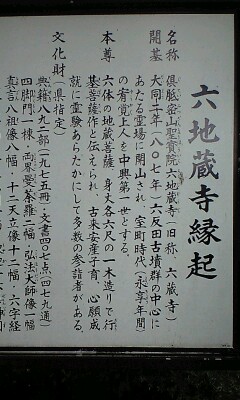 六地蔵寺縁起
名称 倶胝密山聖宝院六地蔵寺(旧称、六蔵寺)
開基 大同二年(八〇七年)、六反田古墳群の中心に
あたる霊場に開山され、室町時代(永享年間)
の宥覚上人を中興第一世とする。
本尊 六体の地蔵菩薩、身丈各六尺の一木造りで行
基菩薩作と伝えられ、古来安産子育、心願成
就に霊験あらたかにして多数の参詣者がある。
文化財(県指定)
典籍八九二部(一九七五冊)・文書四〇七点(四七九通)
四脚門一棟・両界曼荼羅二幅・弘法大師像一幅
真言八祖像八幅・十二天立像十二幅・六字経